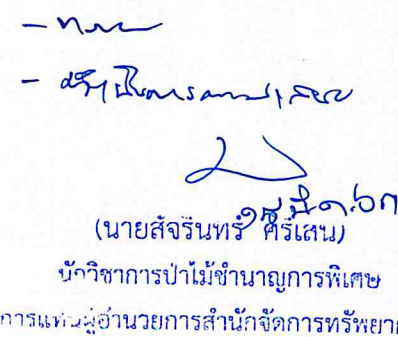 - ทราบ
- ดำเนินการตามเสนอ
(นายสัจรินทร์ ศรีเสน)
นักวิชาการป่าไม้ชำนาญการพิเศษ
การแทนผู้อำนวยการสำนักจัดการทรัพยา